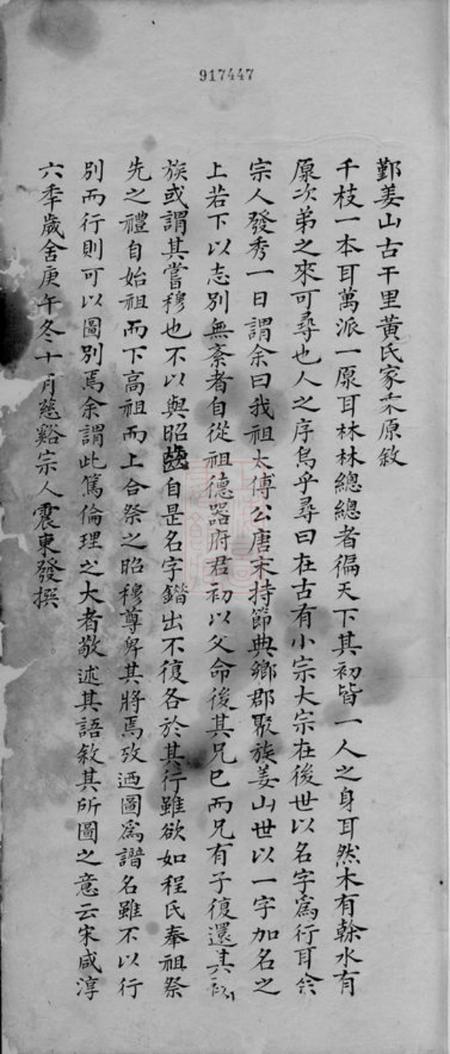 917447
鄞姜山古干里黃氏家乘原敘
千枝一本耳萬派一原耳林林總總者徧天下其初皆一人之身耳然木有榦水有
原次弟之來可尋也人之序烏乎尋曰在古有小宗大宗在後世以名字爲行耳
宗人發秀一日謂余曰我祖太傅公唐末持節典鄉郡聚族姜山世以一字加名之
上若下以志別無紊者自從祖德器府君初以父命後其兄巳而兄有子復還其
族或謂其嘗穆也不以與昭齒自是名字錯出不復各於其行雖欲如程氏奉祖祭
先之禮自始祖而下高祖而上合祭之昭穆尊卑其將焉攷迺圖爲譜名雖不以行
別而行則可以圖別焉余謂此篤倫理之大者敬述其語敘其所圖之意云宋咸淳
六季歲舍庚午冬十月慈谿宗人震東發撰